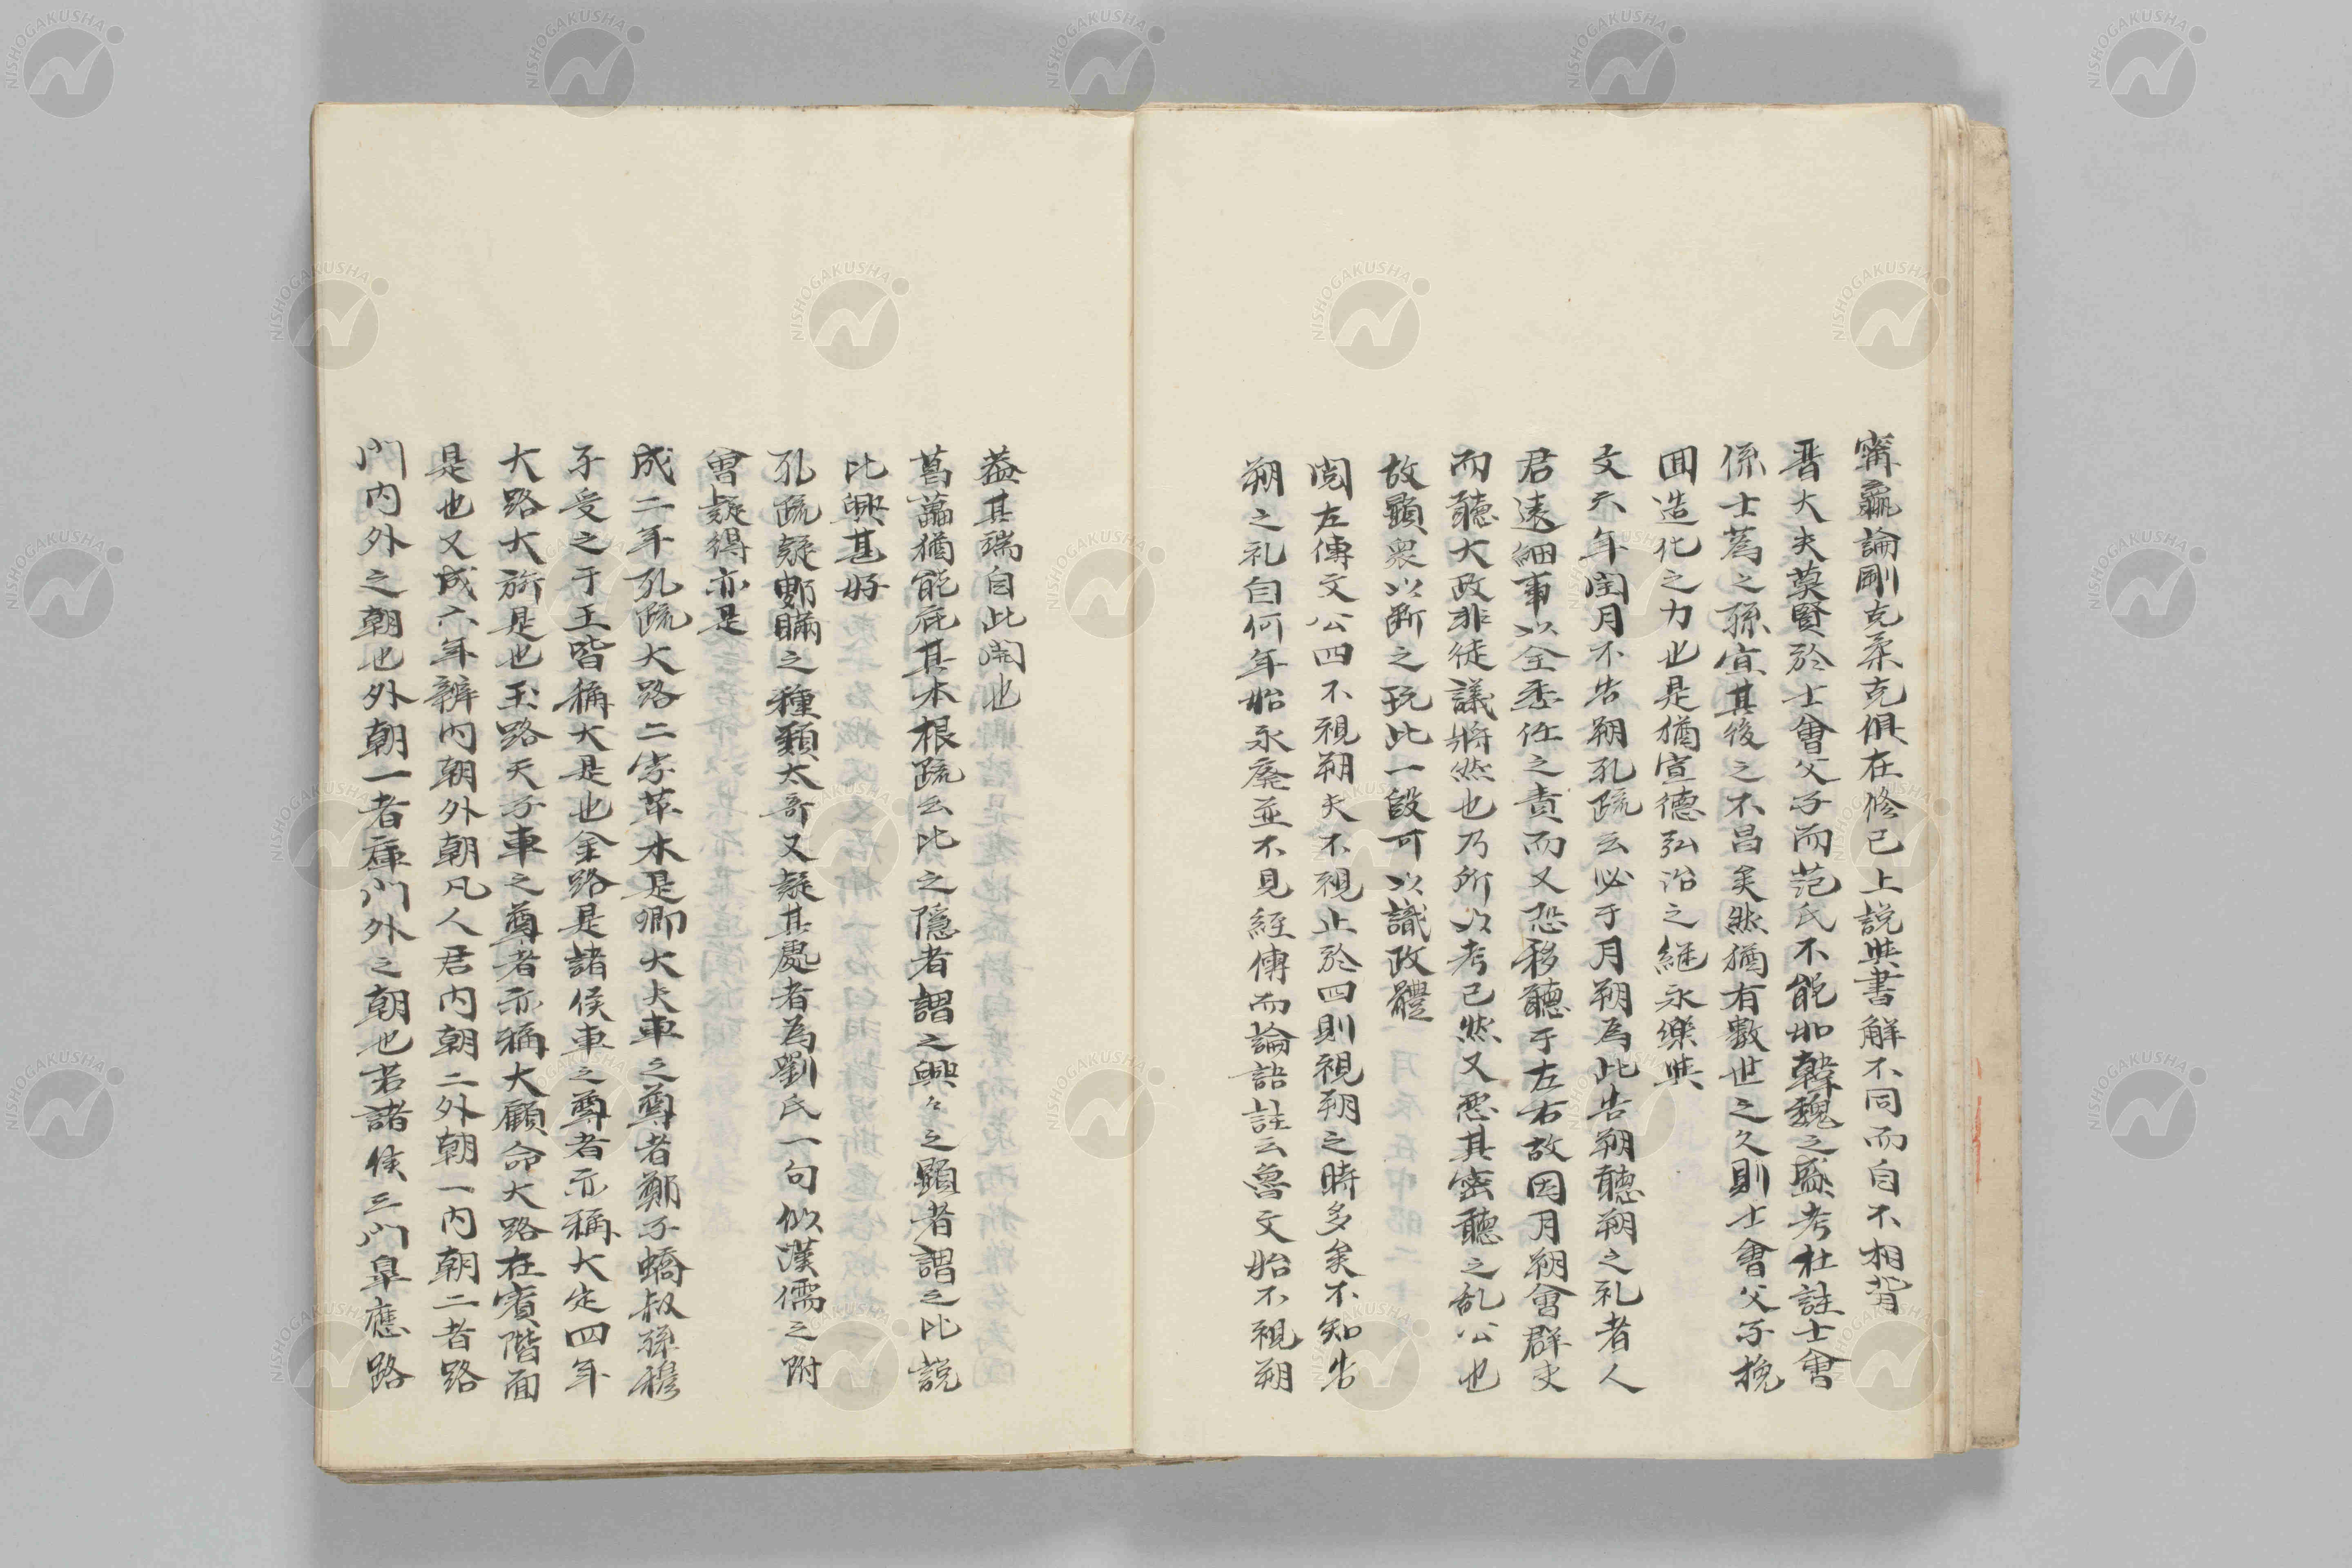 甯嬴論剛克柔克俱在修己上説與書解不同而自不相背
晋大夫莫賢於士會父子而范氏不能如韓魏之盛考杜註士會
係士蔿之孫宜其後之不昌矣然猶有數世之久則士會父子挽
囬造化之力也是猶宣德弘治之継永樂與
文六年閏月不告朔孔疏云必于月朔為此告朔聽朔之礼者人
君遠細事以全委任之責而又恐移聽于左右故因月朔會群吏
而聽大政非徒議將然也乃所以考已然又惡其密聽之乱公也
故顕衆以断之玩此一段可以識政體
閲左傳文公四不視朔夫不視止於四則視朔之時多矣不知告
朔之礼自何年始永廢並不見経傳而論語註云魯文始不視朔
葢其端自此開也
葛藟猶能庇其本根疏云比之隠者謂之興々之顕者謂之比説
比興甚好
孔疏疑鄋瞞之種類太奇又疑其處者為劉氏一句似漢儒之附
會疑得亦是
成二年孔疏大路二字革木是卿大夫車之尊者鄭子蟜叔孫穆
子受之于王皆稱大是也金路是諸侯車之尊者亦稱大定四年
大路大旂是也玉路天子車之尊者亦稱大顧命大路在賓階面
是也又成六年辨内朝外朝凡人君内朝二外朝一内朝二者路
門内外之朝也外朝一者庫門外之朝也若諸侯三門皐應路
NISHOGAKUSHA